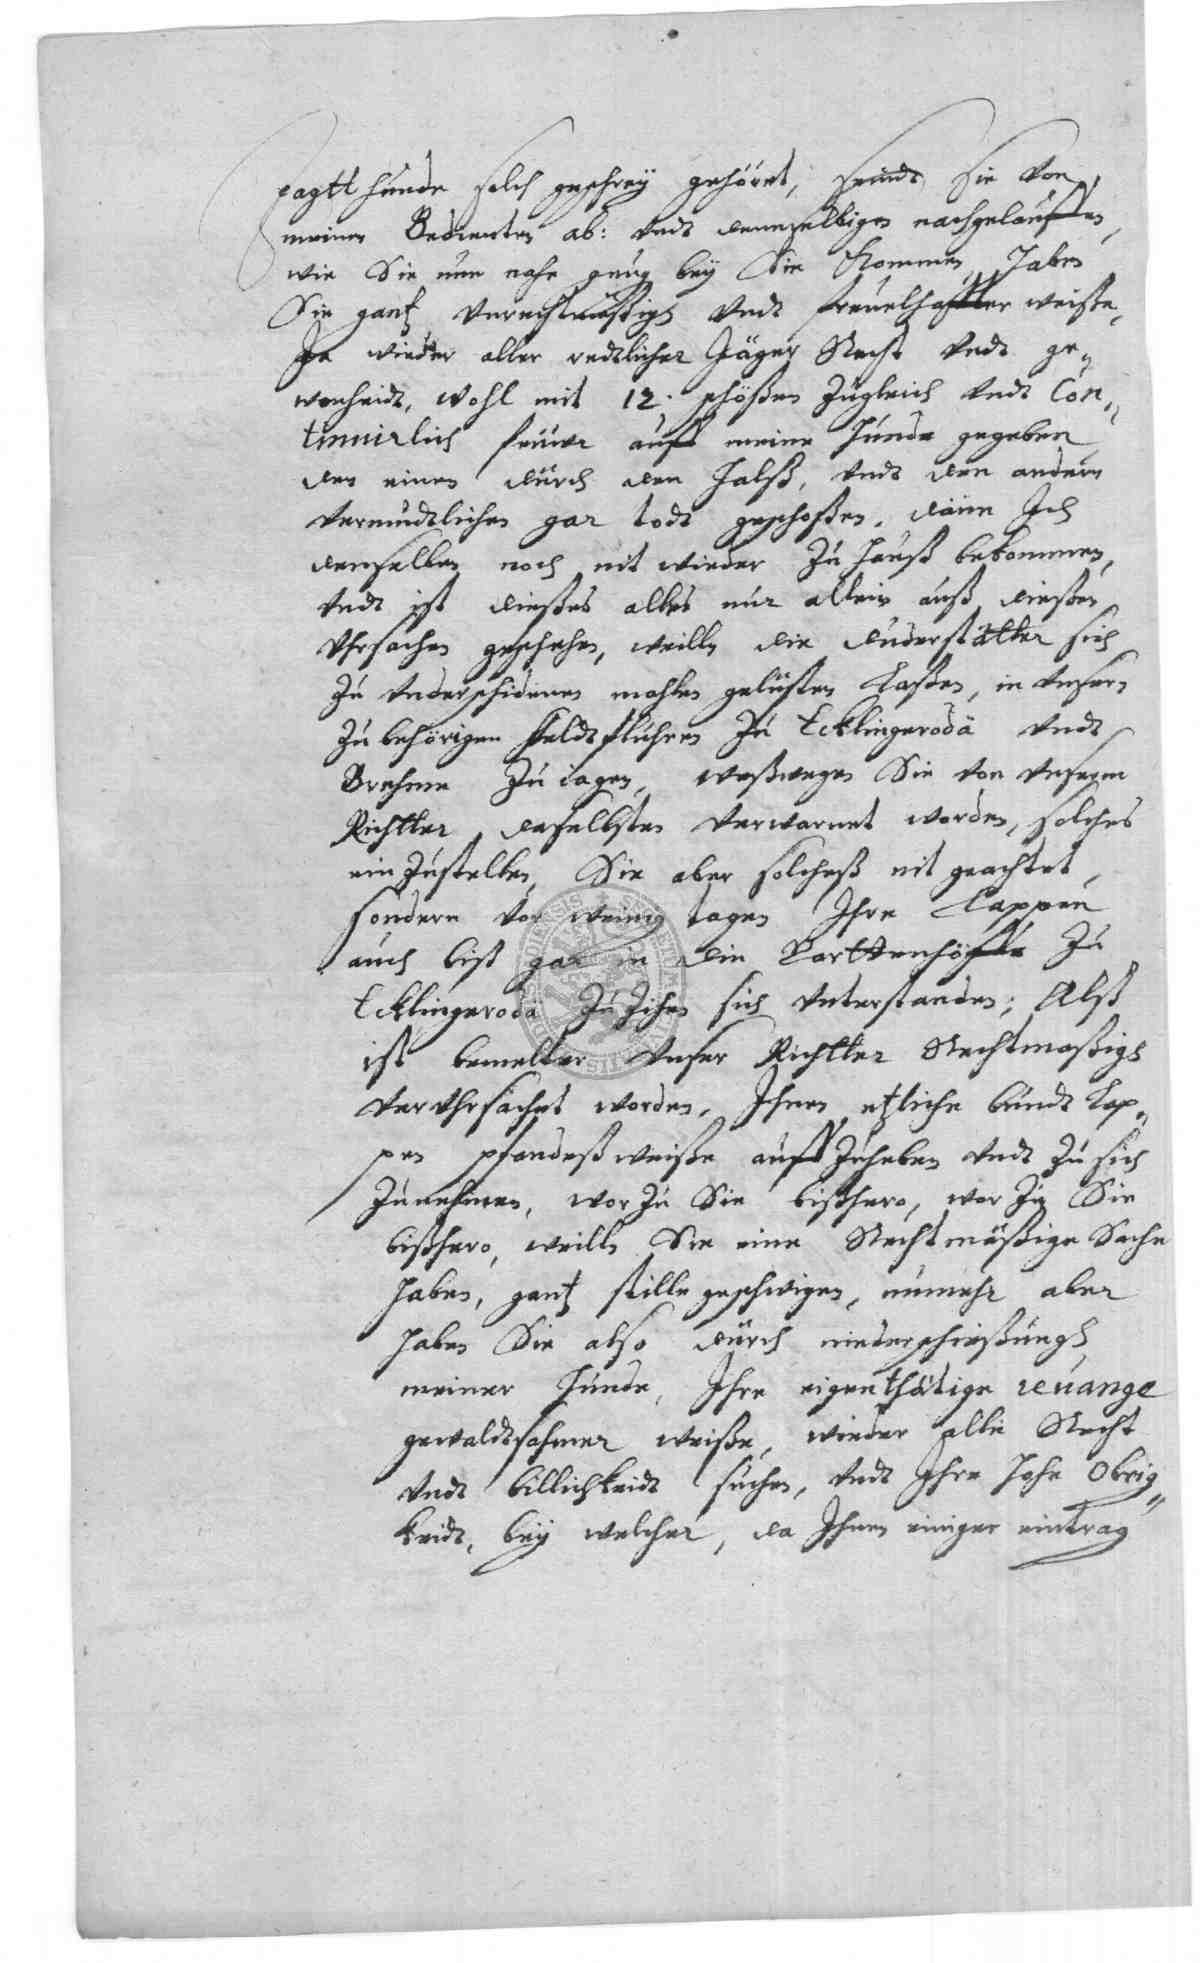 Jagtt hunde solch geschreÿ gehöret, seindt sie von
meinen Bedienten ab: vndt demselbigen nachgelauffen,
wie Sie nun nahe gnug beÿ Sie kommen, haben
Sie gantz vnrechtmäßigh vndt freuelhaffter weiße,
Ja wieder aller redtlicher Jäger Recht vndt ge-
wonheidt, wohl mit 12. schößen zugleich vndt Con-
tinuirlich feüwr auff meine hunde gegeben
den einen durch den halß, vndt den andern
vermudtlichen gar todt geschoßen, dann Ich
denselben noch nit wieder zu hauß bekommen,
vndt ist dießes alles nur allein auß dießen
Vhrsachen geschehen, weilln die Duderstätter sich
zu vnderschidenen mahlen gelüsten laßen, in vnsern
zubehörigen feldtfluhren zu Ecklingeroda vndt
Brehme zu iagen, weßwegen Sie von vnserm
Richtter daselbsten verwarnet worden, solches
ein zustellen, Sie aber solcheß nit geachtet,
sondern vor wenig tagen Ihre Lappen
auch biß gar in die Gartten höffe zu
Ecklingeroda zu zihen sich vnterstanden; Alß
ist bemelter vnser Richtter Rechtmaßigh
vervhrsachet worden, Ihnen etzliche bundt Lap-
pen pfandeß weiße auff zuheben vndt zu sich
zunehmen, wor zu Sie bißhero, wor zu Sie
bißhero, weilln Sie eine Rechtmäßige Sache
haben, gantz stille geschwigen, nunmehr aber
haben Sie also durch niederschießungh
meiner hunde, Ihre eigenthätige revange
gewaldtsahmer weiße, wieder alle Recht
vndt billichkeidt suchen, vndt Ihre hohe Obrig-
keidt, beÿ welcher, da Ihnen einiger eintrag